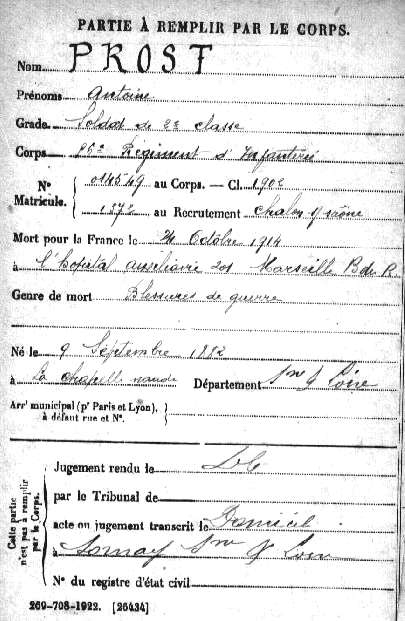 PARTIE À REMPLIR PAR LE CORPS.
Nom PROST
Prénoms Antoine
Grade Soldat de 2e classe
Corps 95e Régiment d'Infanterie
Nº Matricule. 014549 au Corps. — Cl. 1902
1372 au Recrutement Chalon s/ Saône
Mort pour la France le Octobre 1914
à l'hopital auxiliaire 201 Marseille B du R
Genre de mort Blessures de guerre
Né le 9 Septembre 1882
à La Chapelle naude Département Sne & Loire
Arrt municipal (pr Paris et Lyon), à défaut rue et Nº.
Cette partie n'est pas à remplir par le Corps.
Jugement rendu le
par le Tribunal de
acte ou jugement transcrit le Domicil
à Sornay Sne & Loire
Nº du registre d'état civil
269-708-1922. [26434]